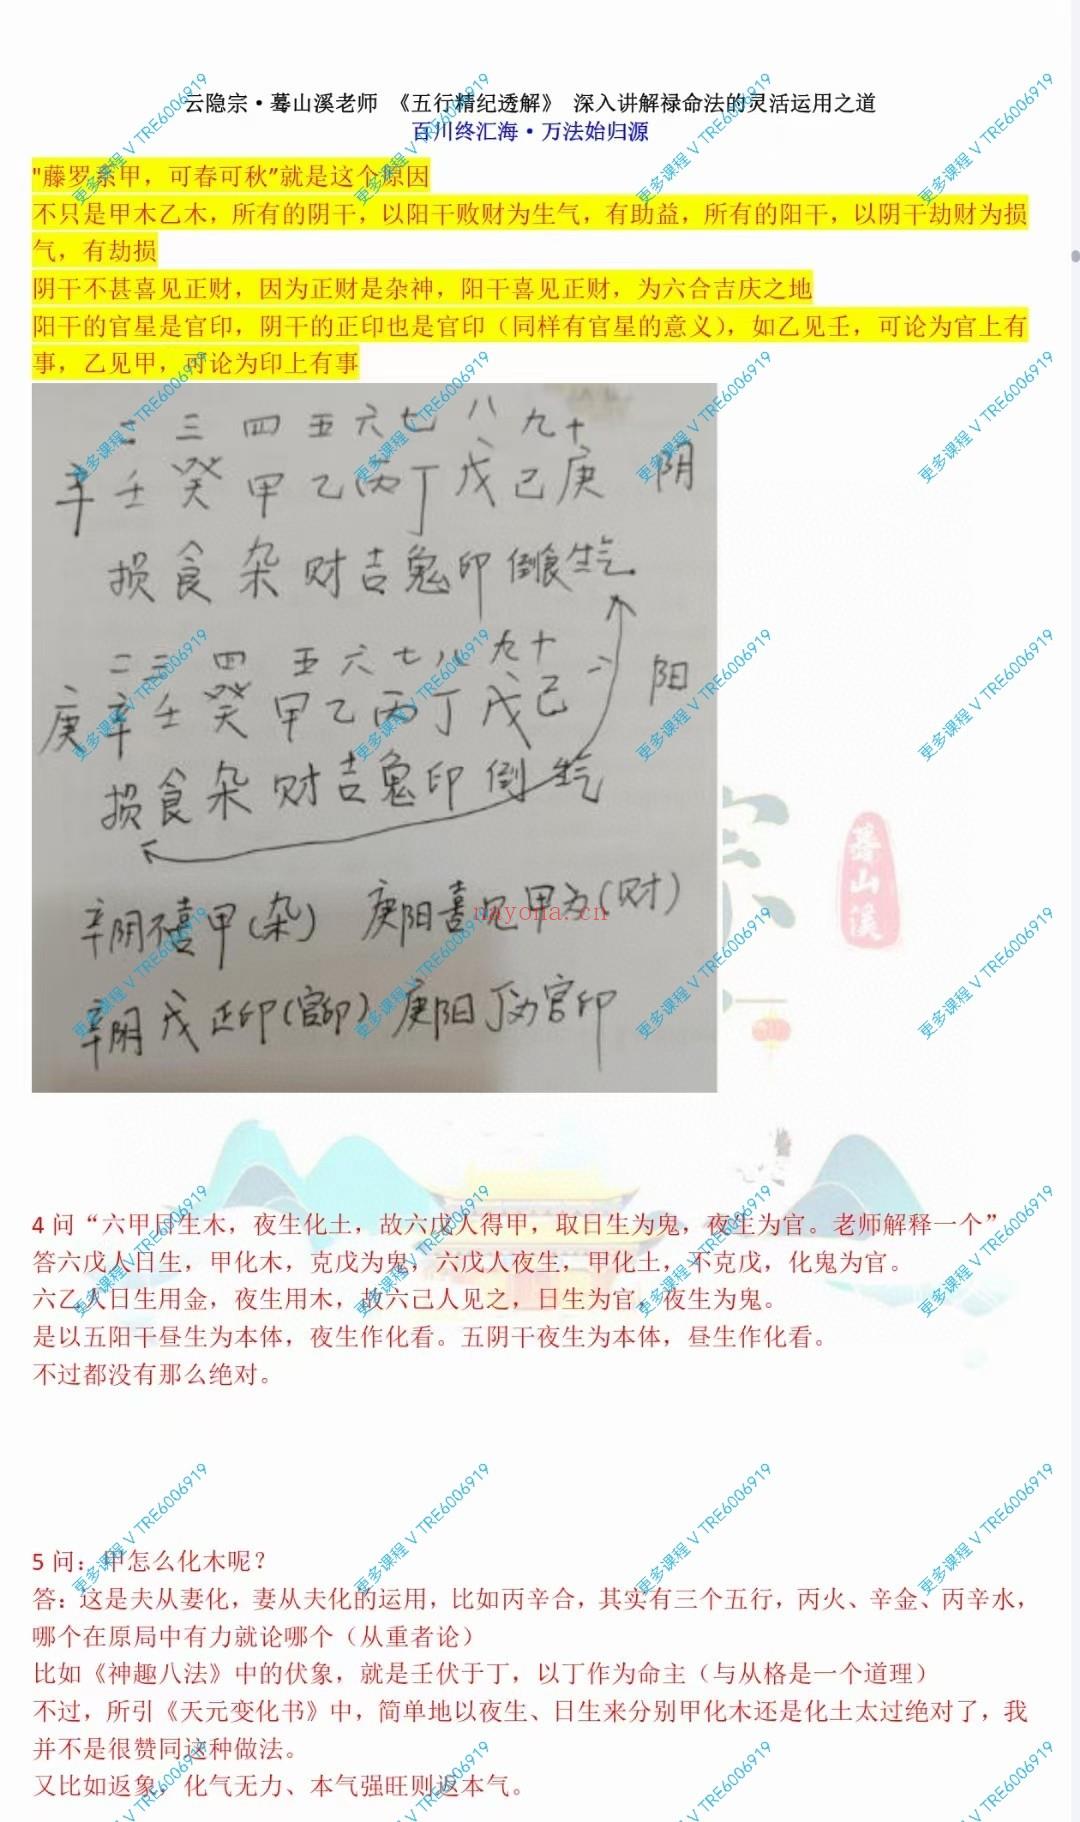 云隐宗·蓦山溪老师 《五行精纪透解》 深入讲解禄命法的灵活运用之道
百川终汇海·万法始归源
"藤罗系甲，可春可秋”就是这个原因
不只是甲木乙木，所有的阴干，以阳干败财为生气，有助益，所有的阳干，以阴干劫财为损
气，有劫损
阴干不甚喜见正财，因为正财是杂神，阳干喜见正财，为六合吉庆之地
阳干的官星是官印，阴干的正印也是官印（同样有官星的意义），如乙见壬，可论为官上有
事，乙见甲，可论为印上有事
二 三 四 五 六 七 八 九 十
辛 壬 癸 甲 乙 丙 丁 戊 己 庚 阴
损 食 杂 财 吉 鬼 印 倒食 生气
二 三 四 五 六 七 八 九 十
庚 辛 壬 癸 甲 乙 丙 丁 戊 己 阳
损 食 杂 财 吉 鬼 印 倒 生气
辛阴不喜甲(杂) 庚阳喜见甲为(财)
辛阴 戊正印(官印) 庚阳丁为官印
nayona.cn
蓦山溪
4 问“六甲日生木，夜生化土，故六戊人得甲，取日生为鬼，夜生为官。老师解释一个”
答六戊人日生，甲化木，克戊为鬼，六戊人夜生，甲化土，不克戊，化鬼为官。
六乙人日生用金，夜生用木，故六己人见之，日生为官，夜生为鬼。
是以五阳干昼生为本体，夜生作化看。五阴干夜生为本体，昼生作化看。
不过都没有那么绝对。
5 问：甲怎么化木呢？
答：这是夫从妻化，妻从夫化的运用，比如丙辛合，其实有三个五行，丙火、辛金、丙辛水，
哪个在原局中有力就论哪个（从重者论）
比如《神趣八法》中的伏象，就是壬伏于丁，以丁作为命主（与从格是一个道理）
不过，所引《天元变化书》中，简单地以夜生、日生来分别甲化木还是化土太过绝对了，我
并不是很赞同这种做法。
又比如返象，化气无力、本气强旺则返本气。
更多课程 V TRE6006919